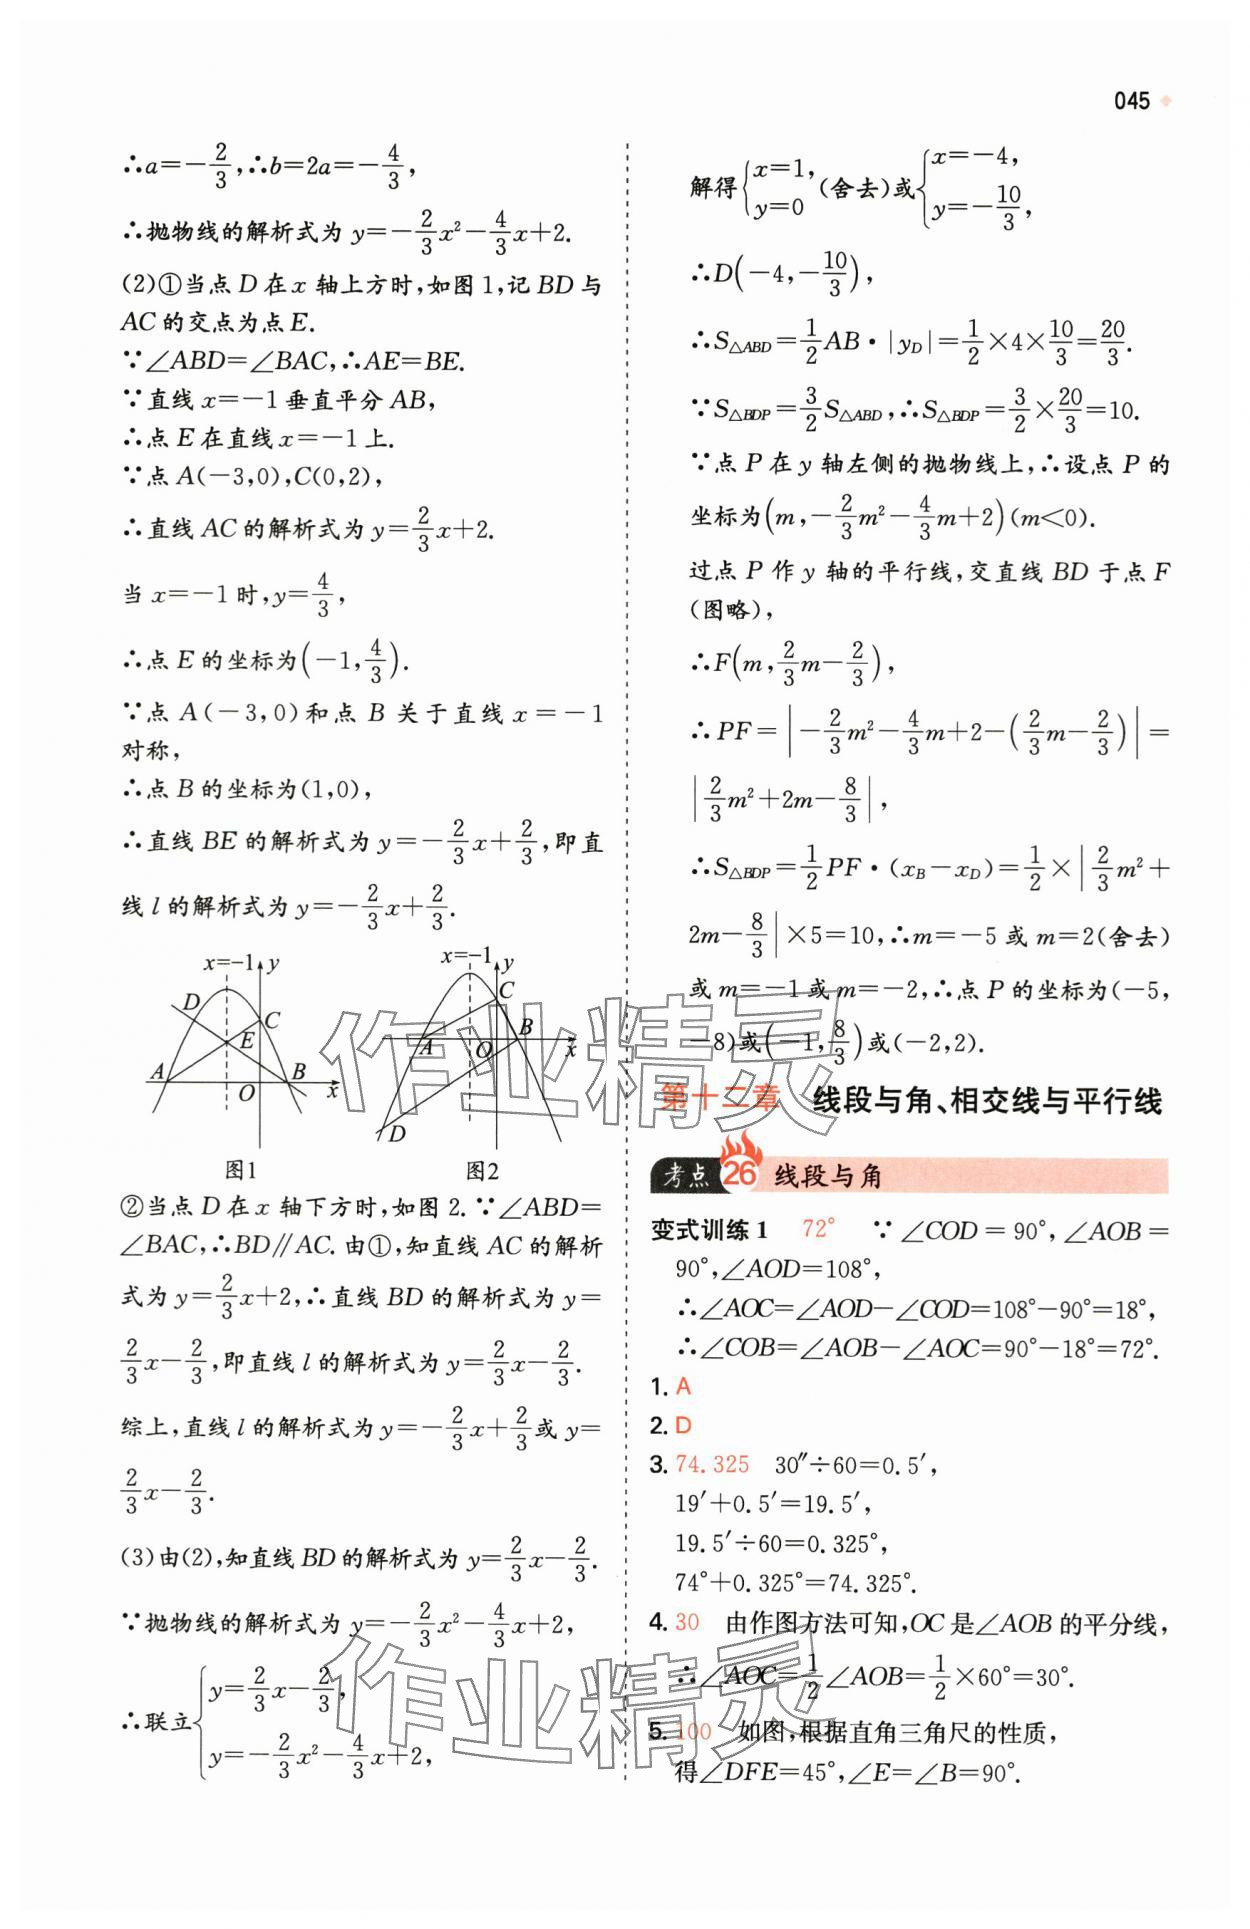 045
∴a=-2/3,∴b=2a=-4/3,
∴抛物线的解析式为 y=-2/3x²-4/3x+2.
(2)①当点 D 在 x 轴上方时,如图 1,记 BD 与
AC 的交点为点 E.
∵∠ABD=∠BAC,∴AE=BE.
∵直线 x=-1 垂直平分 AB,
∴点 E 在直线 x=-1 上.
∵点 A(-3,0),C(0,2),
∴直线 AC 的解析式为 y=2/3x+2.
当 x=-1 时,y=4/3,
∴点 E 的坐标为(-1,4/3).
∵点 A(-3,0)和点 B 关于直线 x=-1
对称,
∴点 B 的坐标为(1,0),
∴直线 BE 的解析式为 y=-2/3x+2/3,即直
线 l 的解析式为 y=-2/3x+2/3.
x=-1 y
D
C
E
A O B x
图1
x=-1 y
C
B
A O x
D
图2
②当点 D 在 x 轴下方时,如图 2.∵∠ABD=
∠BAC,∴BD∥AC.由①,知直线 AC 的解析
式为 y=2/3x+2,∴直线 BD 的解析式为 y=
2/3x-2/3,即直线 l 的解析式为 y=2/3x-2/3.
综上,直线 l 的解析式为 y=-2/3x+2/3或 y=
2/3x-2/3.
(3)由(2),知直线 BD 的解析式为 y=2/3x-2/3.
∵抛物线的解析式为 y=-2/3x²-4/3x+2,
∴联立{y=2/3x-2/3,
y=-2/3x²-4/3x+2,
解得{x=1, y=0(舍去)或{x=-4, y=-10/3,
∴D(-4,-10/3),
∴S△ABD=1/2AB·|yD|=1/2×4×10/3=20/3.
∵S△BDP=3/2S△ABD,∴S△BDP=3/2×20/3=10.
∵点 P 在 y 轴左侧的抛物线上,∴设点 P 的
坐标为(m,-2/3m²-4/3m+2)(m<0).
过点 P 作 y 轴的平行线,交直线 BD 于点 F
(图略),
∴F(m,2/3m-2/3),
∴PF=|-2/3m²-4/3m+2-(2/3m-2/3)|=
|2/3m²+2m-8/3|,
∴S△BDP=1/2PF·(xB-xD)=1/2×|2/3m²+
2m-8/3|×5=10,∴m=-5 或 m=2(舍去)
或 m=-1 或 m=-2,∴点 P 的坐标为(-5,
-8)或(-1,8/3)或(-2,2).
第十二章 线段与角、相交线与平行线
考点 26 线段与角
变式训练 1 72° ∵∠COD=90°,∠AOB=
90°,∠AOD=108°,
∴∠AOC=∠AOD-∠COD=108°-90°=18°,
∴∠COB=∠AOB-∠AOC=90°-18°=72°.
1. A
2. D
3. 74.325 30″÷60=0.5′,
19′+0.5′=19.5′,
19.5′÷60=0.325°,
74°+0.325°=74.325°.
4. 30 由作图方法可知,OC 是∠AOB 的平分线,
∴∠AOC=1/2∠AOB=1/2×60°=30°.
5. 100 如图,根据直角三角尺的性质,
得∠DFE=45°,∠E=∠B=90°.
作业精灵
作业精灵